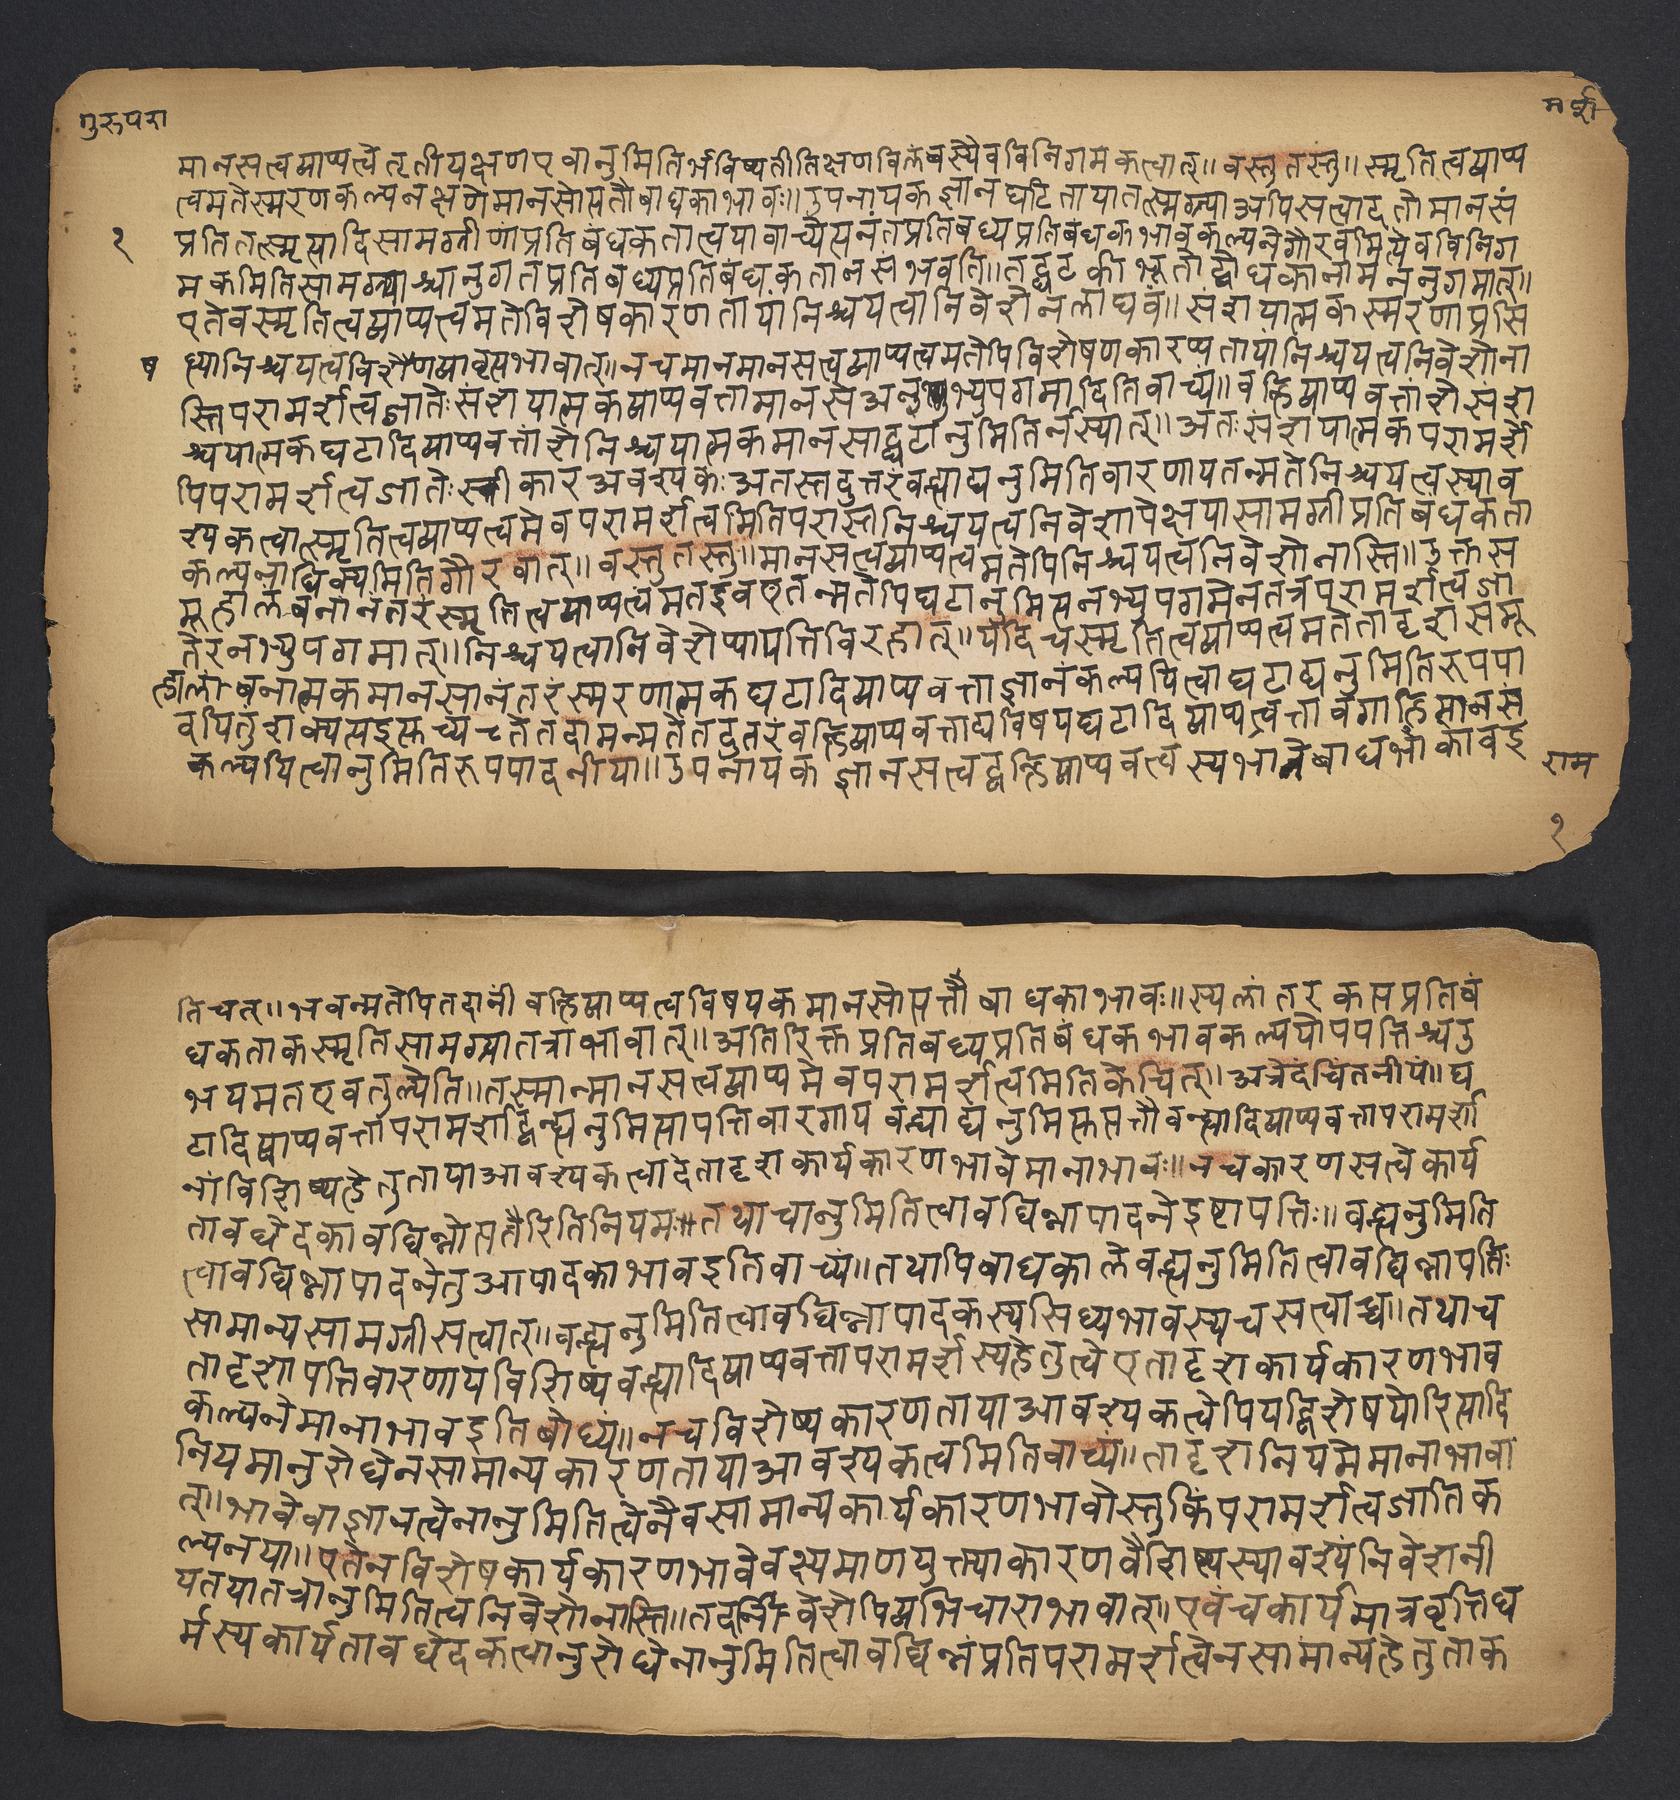 गुरुपरा
मर्श
मानसत्वव्याप्यत्वे तृतीयक्षणएवानुमितिर्भविष्यतीतिक्षणविलंबस्यैवविनिगमकत्वात्॥ वस्तुतस्तु॥ स्मृतित्वव्याप्य
त्वमतेस्मरणकल्पनक्षणेमानसोत्पत्तौबाधकाभावः॥ उपनायकज्ञानघटितायातत्स्मग्र्याअपिसत्वादतोमानसं
१
प्रतितत्स्मृत्यादिसामग्रीणांप्रतिबंधकतात्वयावाच्येत्यनंतप्रतिबध्यप्रतिबंधकभावकल्पनेगौरवमित्येवविनिग
मकमितिसामग्र्याश्चानुगतप्रतिबध्यप्रतिबंधकतानसंभवति॥ तद्घटकीभूतोद्बोधकानामननुगमात्॥
एतेवस्मृतित्वव्याप्यत्वमतेविशेषकारणतायांनिश्चयत्वानिवेशेनलाघवं॥ संशयात्मकस्मरणाप्रसि
ष
ध्यानिश्चयत्वविशेणव्यावृत्यभावात्॥ नचमानमानसत्वव्याप्यत्वमतेपिविशेषणकारण्यतायांनिश्चयत्वनिवेशोना
स्तिपरामर्शत्वजातेःसंशयात्मकव्याप्यवत्तामानसेअनभ्युपगमादितिवाच्यं॥ वह्निव्याप्यवत्तांशेसंश
श्चयात्मकघटादिव्याप्यवत्तांशेनिश्चयात्मकमानसाद्घटानुमितिर्नस्यात्॥ अतःसंशयात्मकपरामर्शे
पिपरामर्शत्वजातेःस्वीकारअवश्यकःअतस्तदुत्तरंवह्न्याद्यनुमितिवारणायतन्मतेनिश्चयत्वस्याव
श्यकत्वात्स्मृतित्वव्याप्यत्वमेवपरामर्शत्वमितिपरास्तंनिश्चयत्वनिवेशापेक्षयासामग्रीप्रतिबंधकता
कल्पनाधिक्यमितिगौरवात्॥ वस्तुतस्तुः॥ मानसत्वव्याप्यत्वमतेपिनिश्चयत्वनिवेशोनास्ति॥ उक्तस
मूहालंबनानंतरंस्मृतित्वव्याप्यत्वंमतइवएतन्मतेपिघटानुमित्यनभ्युपगमेनतत्रपरामर्शत्वजा
तेरनभ्युपगमात्॥ निश्चयत्वानिवेशेप्यापत्तिविरहात्॥ यदिचस्मृतित्वव्याप्यत्वमतेतादृशसमू
हालंबनात्मकमानसानंतरंस्मरणात्मकघटादिव्याप्यवत्ताज्ञानंकल्पयित्वाघटाद्यनुमितिरुपपा
दयितुंशक्यत्यइत्कच्यचतेतदामन्मतेतदुत्तरंवह्निव्याप्यवत्ताद्यविषयघटादिव्याप्यत्वत्तावगाहिमानसं
कल्पयित्वानुमितिरूपपादनीया॥ उपनायकज्ञानसत्वद्वह्निव्याप्यवत्वस्यभानेबाधभांकावइ
राम
१
तिचत्॥ भवन्मतेपितदानीं वह्निव्याप्यत्वविषयकमानसोत्पत्तौ बाधकाभावः॥ स्यलांतरकत्पप्रतिबं
धकताकस्मृतिसामग्र्यातत्राभावात्॥ अतिरिक्तप्रतिबध्यप्रतिबंधकभावकल्पयोपपत्तिश्चउ
भयमतएवतुल्यैति॥ तस्मान्मानसत्वव्याप्यमेवपरामर्शत्वमितिकेचित्॥ अत्रेदंचिंतनीयं॥ घ
टादिव्याप्यवत्तापरामर्शाद्वन्ह्यनुमित्यापत्तिवारगायवन्ह्याद्यनुमित्कत्पत्तौवन्ह्यादिव्याप्यवत्तापरामर्शा
नांविशिष्यहेतुतायाआवश्यकत्वादेतादृशकार्यकारणभावेमानाभावः॥ नचकारणसत्वेकार्य
तावछेदकावछिन्नोत्पत्तेरितिनियमः॥ तथाचानुमितित्वावछिन्नापादनेइष्टापत्तिः॥ वह्न्यनुमिति
त्वावछिन्नापादनेतुआपादकाभावइतिवाच्यं॥ तथापिबाधकालेवह्न्यनुमितित्वावछिन्नापत्तिः
सामान्यसामग्रीसत्वात्॥ वह्न्यनुमितित्वावछिन्नापादकस्यसिध्यभावस्यचसत्वाच्च॥ तथाच
तादृशापत्तिवारणायविशिष्यवह्न्यादिव्याप्यवत्तापरामर्शस्यहेतुत्वेएतादृशकार्यकारणभाव
कल्पनेमानाभावइतिबोध्यं॥ नचविशेष्यकारणतायाआवश्यकत्वेपियद्विशेषयोरित्यादि
नियमानुरोधेनसामान्यकारणतायाआवश्यकत्वमितिवाच्यं॥ तादृशनियमेमानाभावा
त्॥ भावेवाज्ञानत्वेनानुमितित्वेनैवसामान्यकार्यकारणभावोस्तुकिंपरामर्शत्वजातिक
ल्पनया॥ एतेनविशेषकार्यकारणभावेवक्ष्यमाणयुक्त्याकारणवैशिष्यस्यावश्यंनिवेशनी
यतयातत्रानुमितित्वनिवेशोनास्ति॥ तदनिवेशेपिव्यभिचाराभावात्॥ एवंचकार्यमात्रवृत्तिध
र्मस्यकार्यतावछेदकत्वानुरोधेनानुमितित्वावछिन्नंप्रतिपरामर्शत्वेनसामान्यहेतुताक